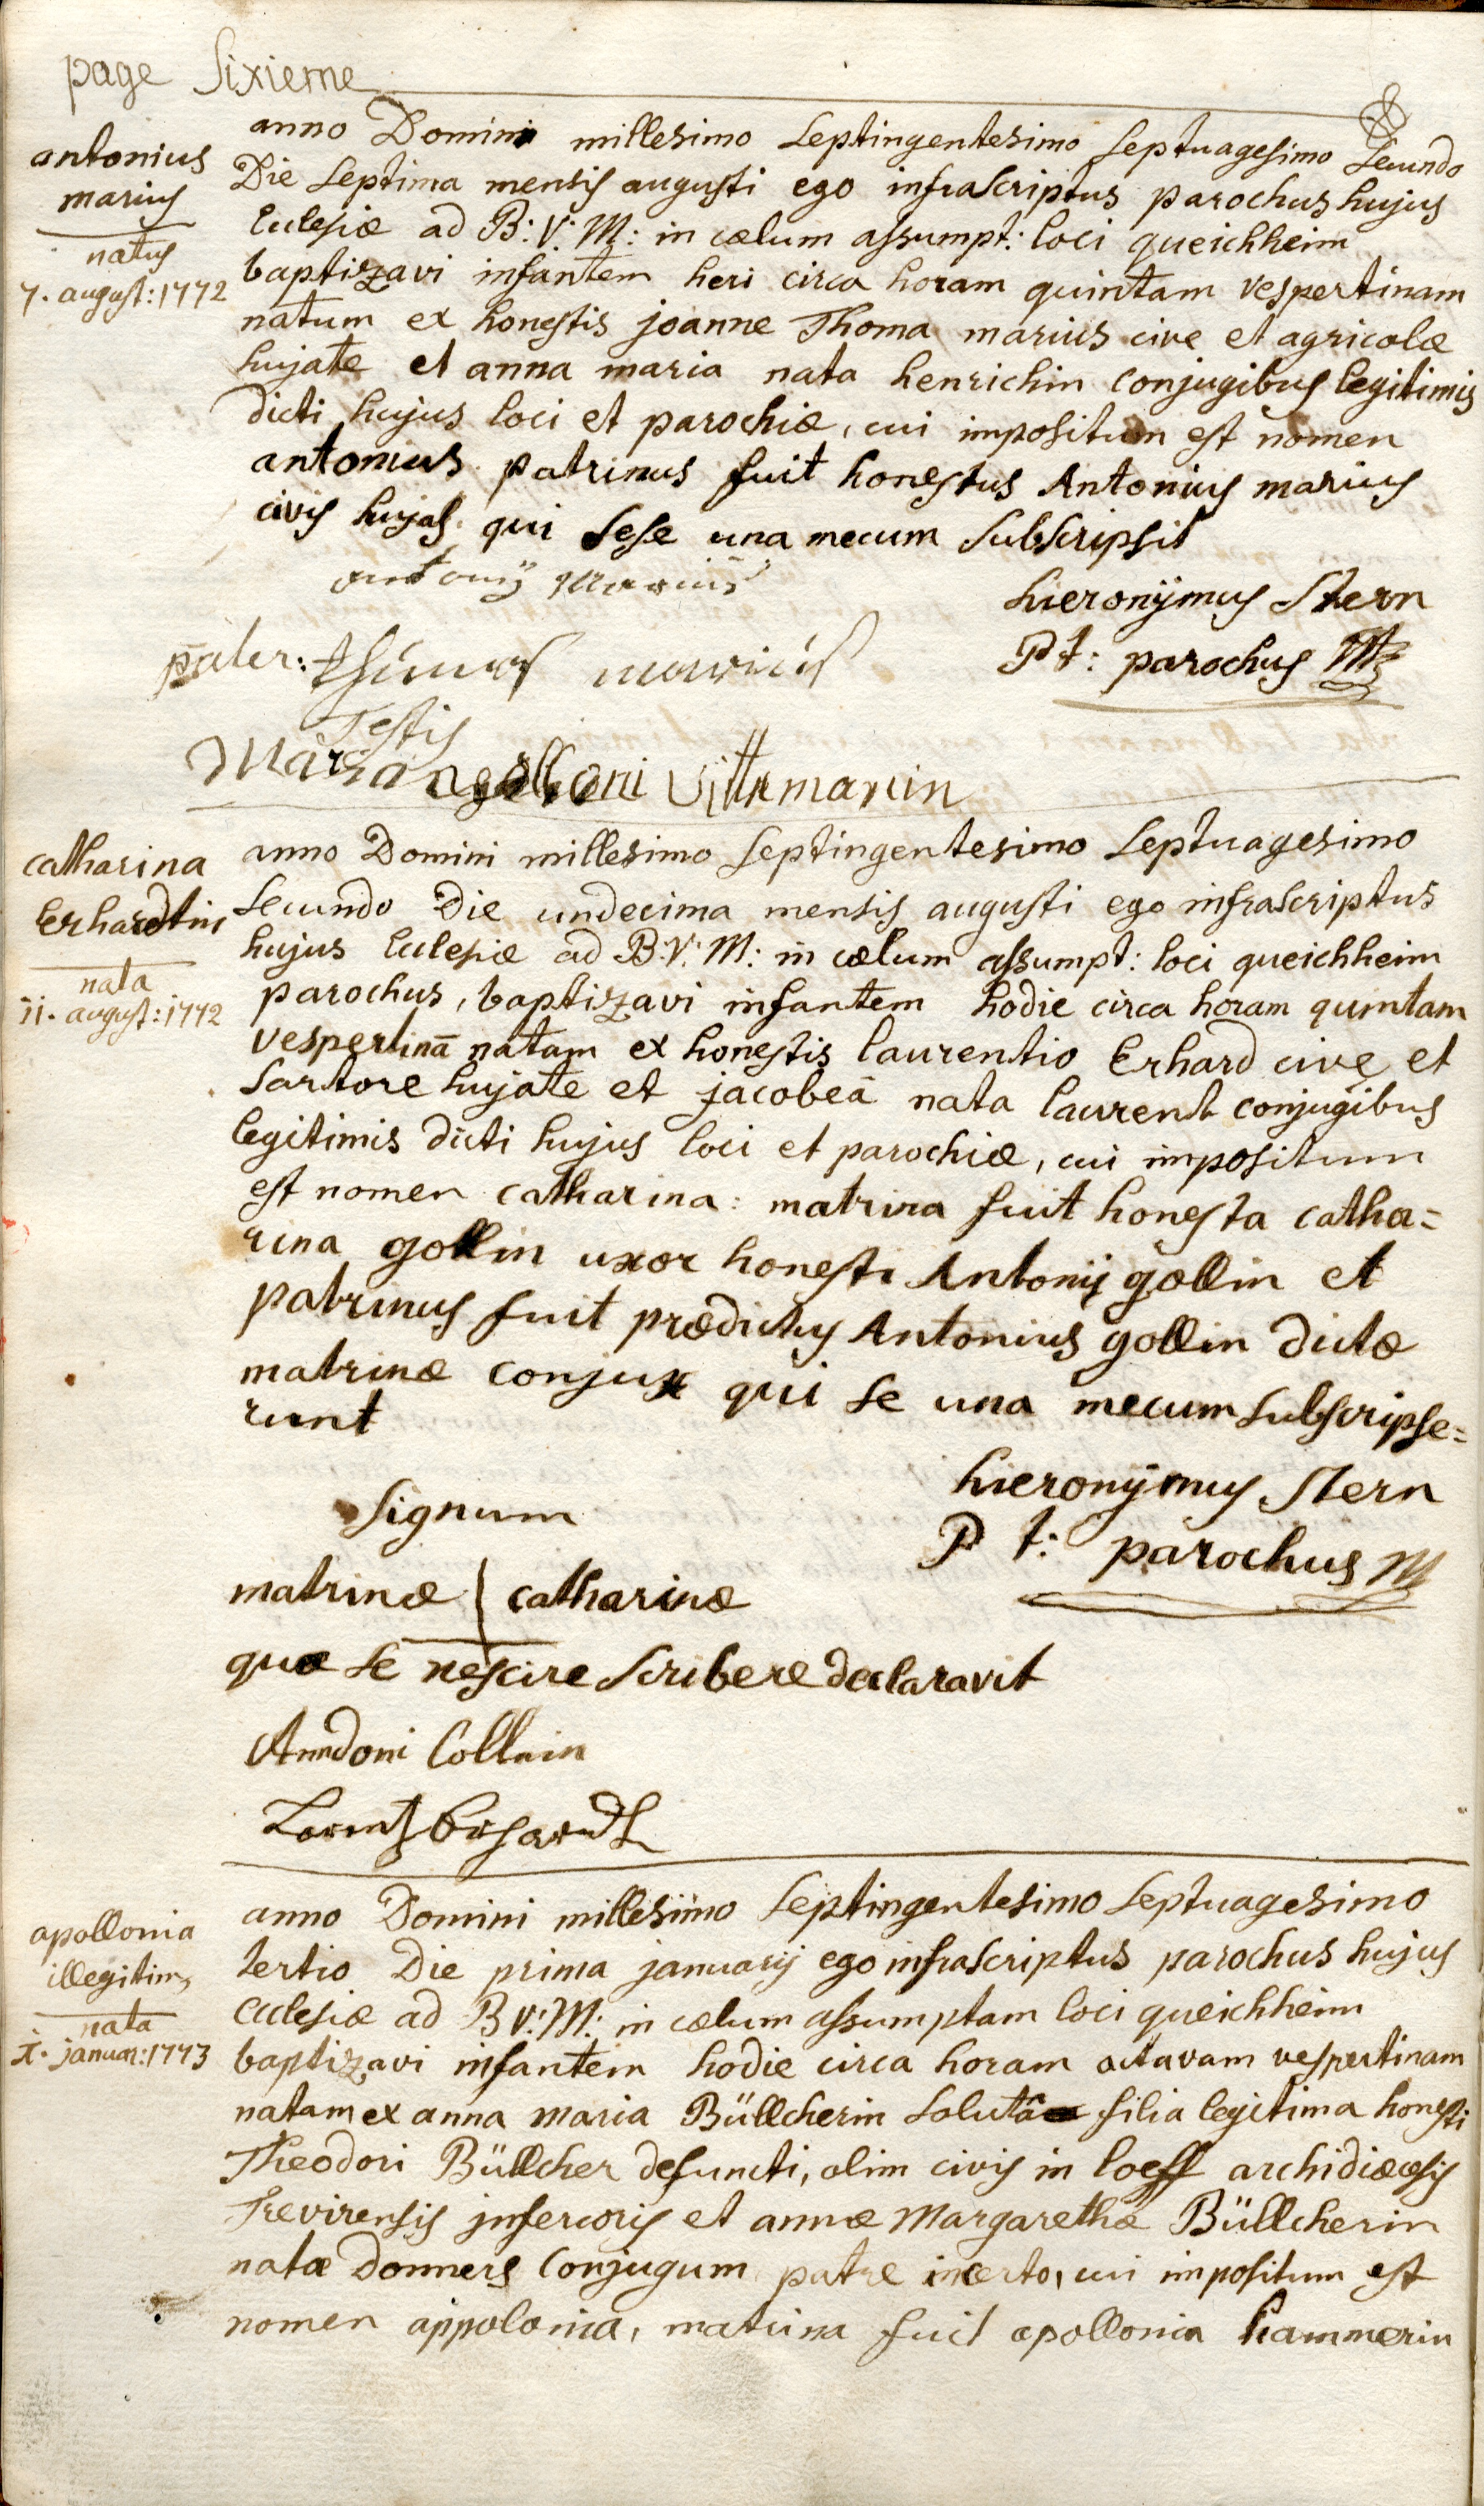 page Sixieme
antonius
marius
natus
7. august: 1772
anno Domini millesimo Septingentesimo Septuagesimo Secundo
Die Septima mensis augusti ego infraScriptus parochus hujus
Eclesiæ ad B: V: M: in cælum assumpt: loci queichheim
baptizavi infantem heri circa horam quintam vespertinam
natum ex honestis joanne Thoma marius cive et agricolæ
hujate et anna maria nata henrichin conjugibus legitimis
dicti hujus loci et parochiæ, cui impositum est nomen
antonius patrinus fuit honestus Antonius marius
civis hujas qui Sese una mecum SubScripsit
antonÿ Marius
hieronÿmus Stern
Pt: parochus
pater: thomas marius
Testis
Maria Vittmarin
catharina
Erhardtin
nata
11. august: 1772
anno Domini millesimo Septingentesimo Septuagesimo
Secundo Die undecima mensis augusti ego infraScriptus
hujus Eclesiæ ad B: V: M: in cælum assumpt: loci queichheim
parochus, baptizavi infantem hodie circa horam quintam
vespertinā natam ex honestis laurentio Erhard cive et
Sartore hujate et jacobeā nata laurent conjugibus
legitimis dicti hujus loci et parochiæ, cui impositum
est nomen catharina: matrina fuit honesta catha=
rina gollin uxor honesti Antonij gollin et
patrinus fuit prædictus Antonius gollin dictæ
matrinæ conjux qui Se una mecum subscripse=
runt
hieronÿmus Stern
P t: parochus
Signum
matrinæ catharinæ
quæ Se nescire Scribere declaravit
Anndoni Collnin
Lorentz Erhardt
apollonia
illegitim,
nata
i. januar: 1773
anno Domini millesimo Septingentesimo Septuagesimo
tertio Die prima januarij ego infraScriptus parochus hujus
Eclesiæ ad B V: M: in cælum assumptam loci queichheim
baptizavi infantem hodie circa horam octavam vespertinam
natam ex anna maria Büllcherin Solutâ filia legitima honesti
Theodori Büllcher defuncti, olim civis in loeff archidiæcesis
Trevirensis inferioris et annæ Margarethæ Büllcherin
natæ Donners Conjugum patre incerto, cui impositum est
nomen appolonia, matrina fuit apollonia hammerin